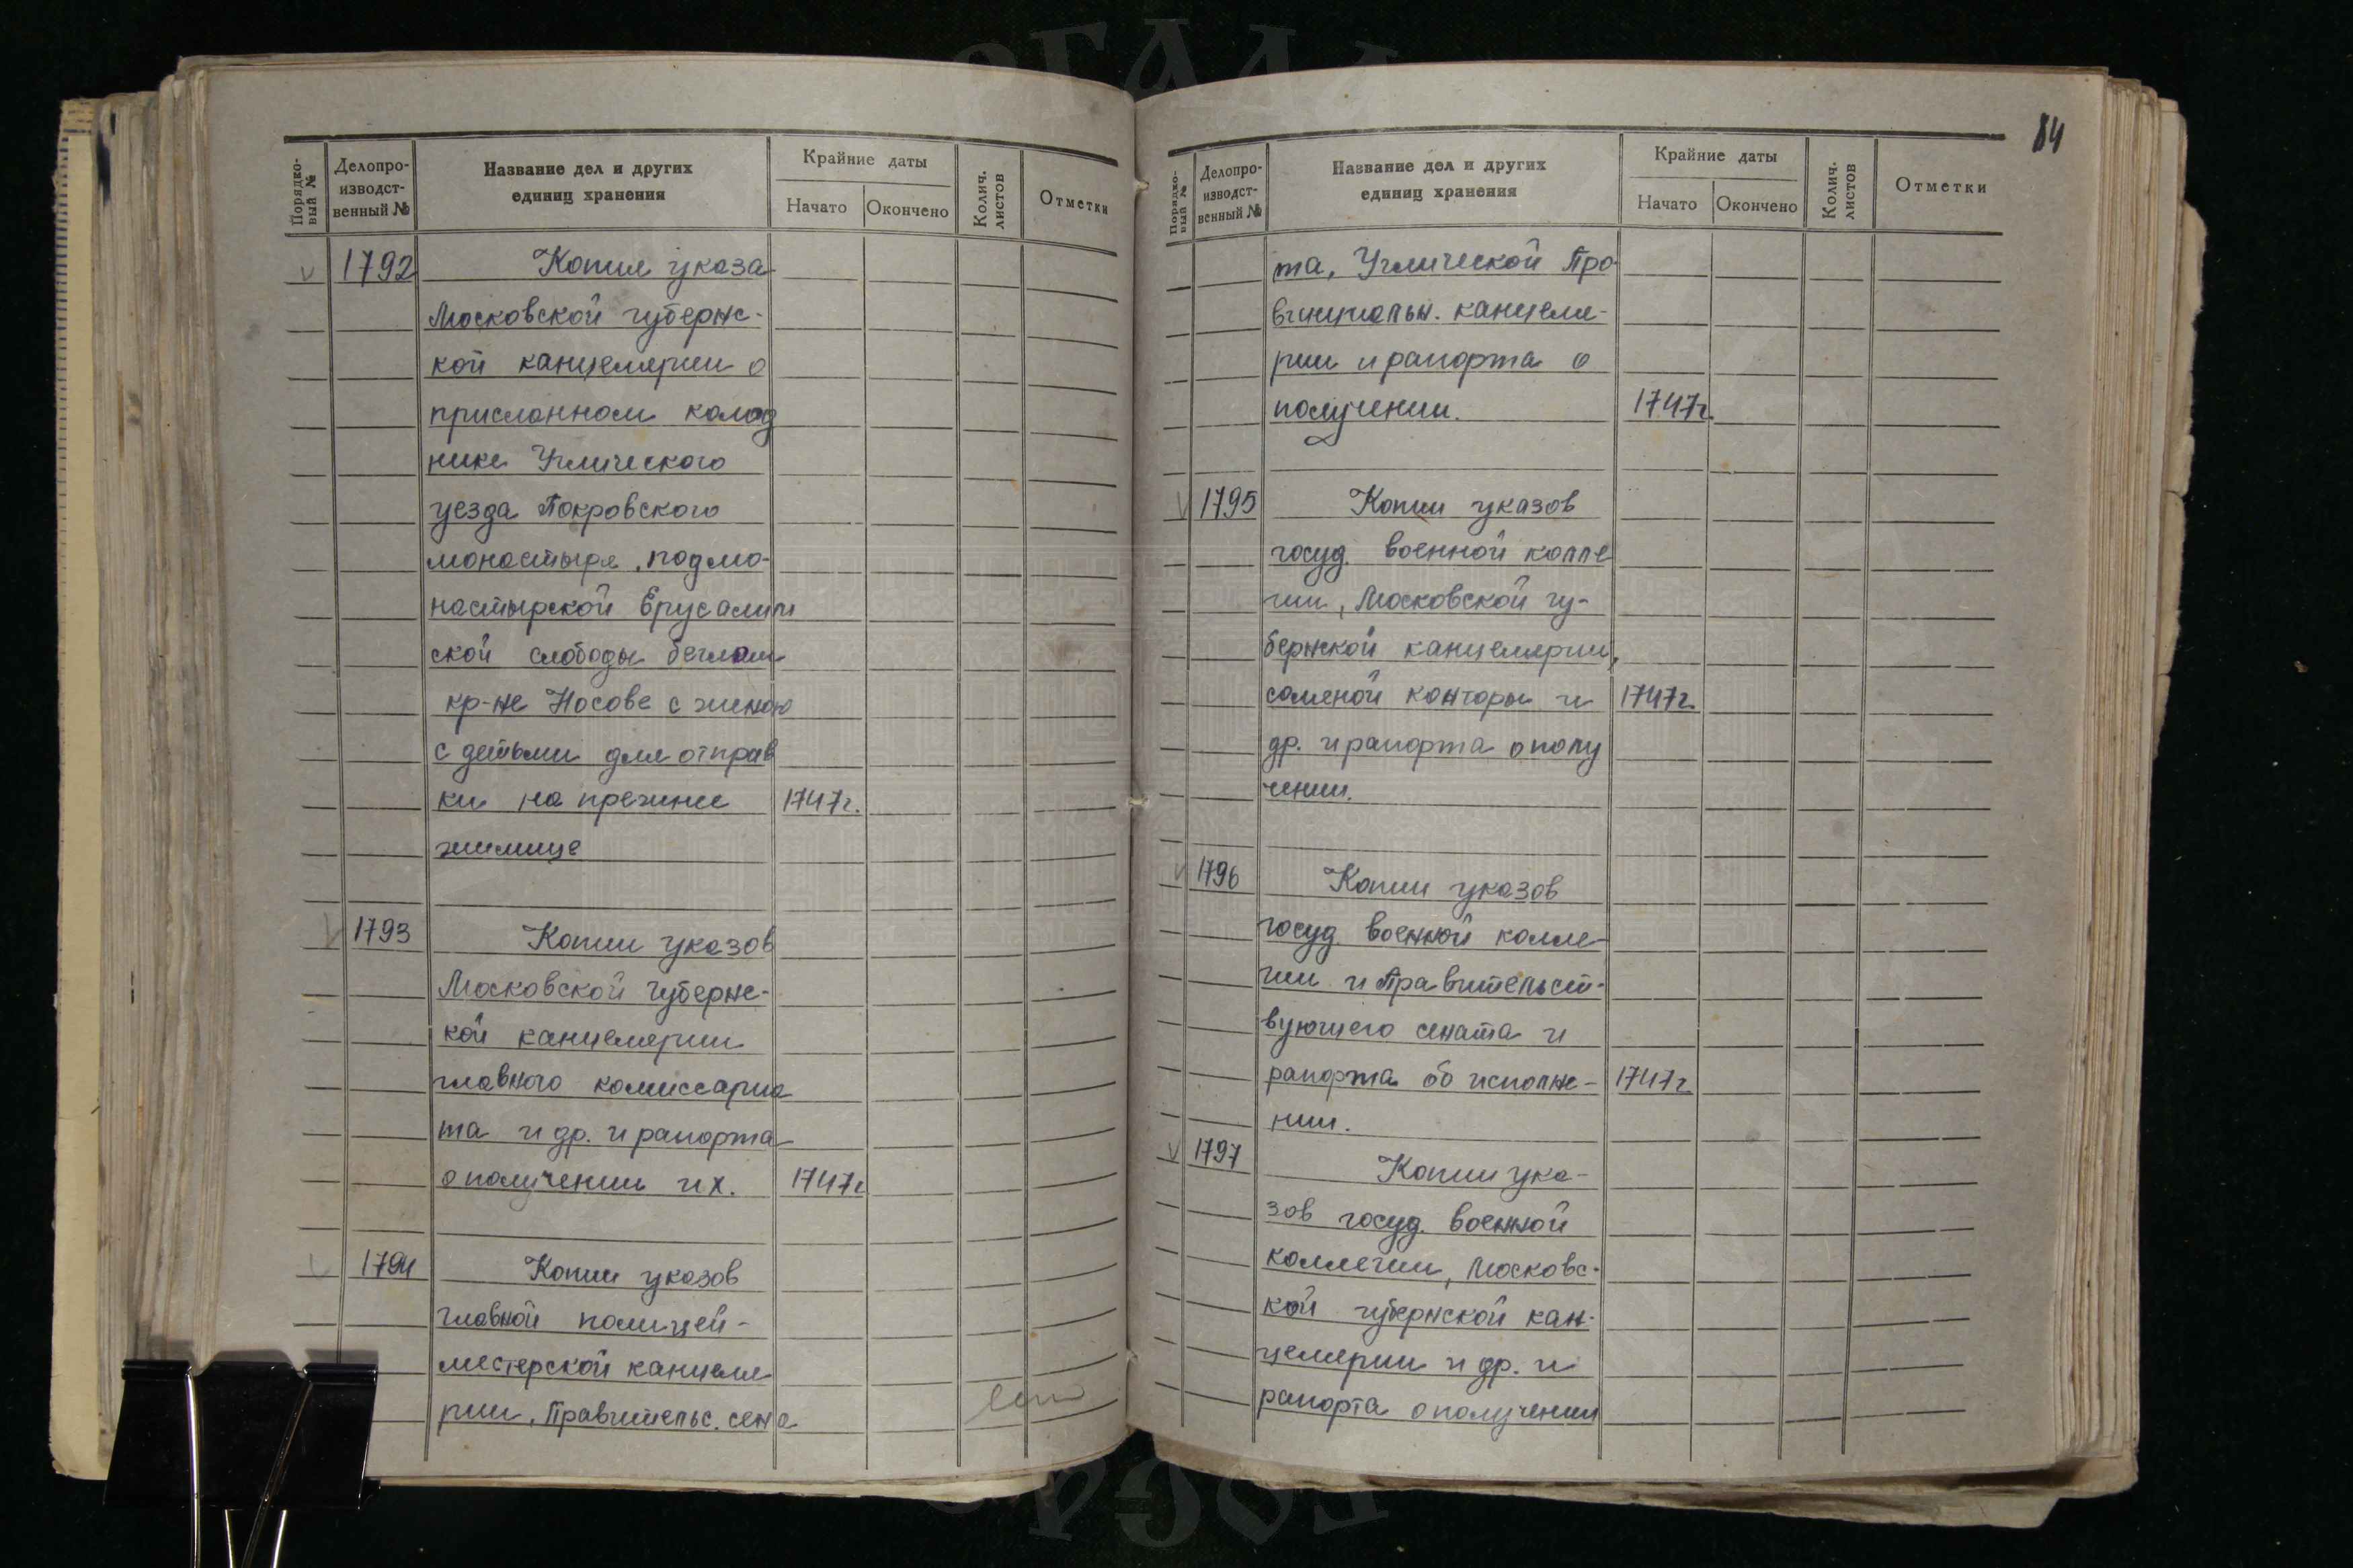 Порядко-
вый №
Делопро-
изводст-
венный №
Название дел и других
единиц хранения
Крайние даты
Начато
Окончено
Колич.
листов
Отметки
1792 Копия указа
Московской губернс-
кой канцелярии о
присланном колод
нике Угличского
уезда Покровского
монастыря, подмо-
настырской Ерусалим
ской слободы беглом
кр-не Носове с женою
с детьми для отправ
ки на прежнее 1747г.
жилище
1793 Копии указов
Московской губернс-
кой канцелярии
главного комиссариа
та и др. и рапорта
о получении их. 1747г
1794 Копии указов
главной полицей-
местерской канцеля
рии, Правительс. сена
84
Порядко-
вый №
Делопро-
изводст-
венный №
Название дел и других
единиц хранения
Крайние даты
Начато
Окончено
Колич.
листов
Отметки
та, Углической Про
винциальн. канцеля-
рии и рапорта о
получении. 1747г.
1795 Копии указов
госуд. военной колле
гии, Московской гу-
бернской канцелярии,
соляной конторы и 1747г.
др. и рапорта о полу
чении.
1796 Копии указов
госуд. военной колле-
гии и Правительст-
вующего сената и
рапорта об исполне- 1747г
нии.
1797 Копии ука-
зов госуд. военной
коллегии, Московс-
кой губернской кан-
целярии и др. и
рапорта о получении